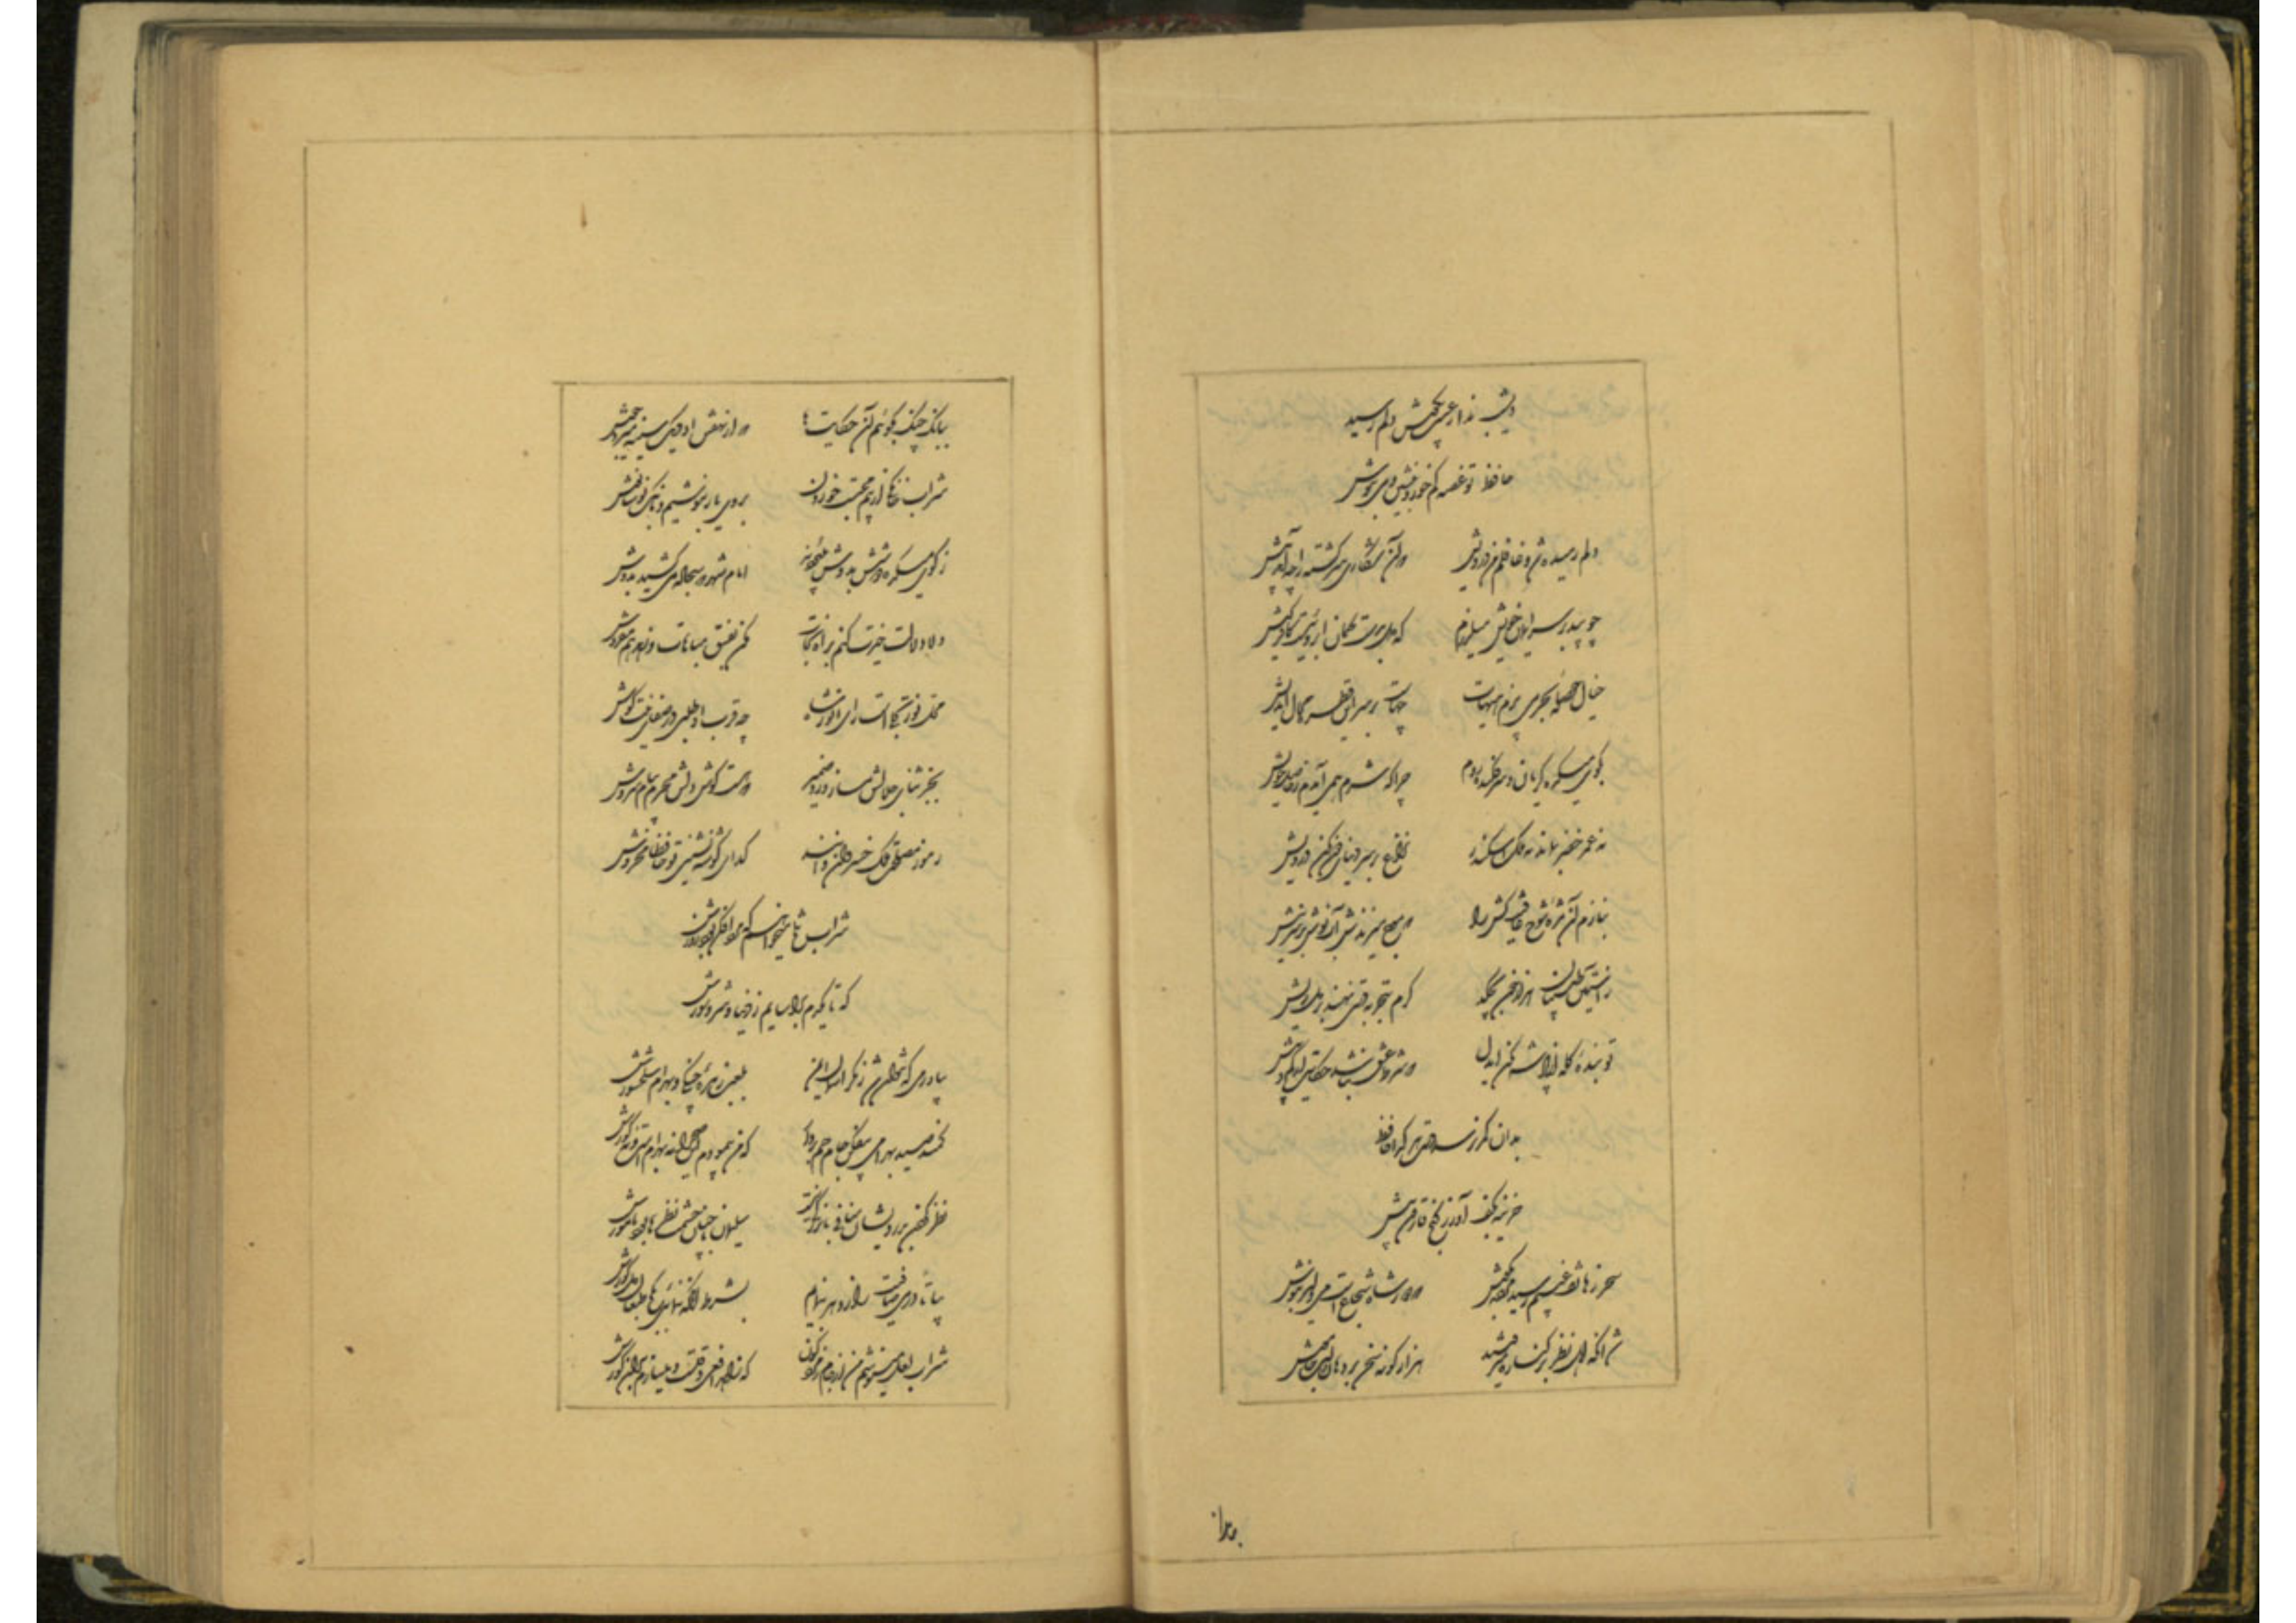 دیشب ندا ز غیب بگوش دلم رسید
حافظ تو غصه کم خور و بنشین و می بنوش
دلم رمیده شد و غافلم من درویش که آن شکاری سرگشته را چه آمد پیش
چو بید بر سر ایمان خویش میلرزم که دل بدست کمان ابروئیست کافر کیش
خیال حوصله بحر می پزم هیهات چهاست در سر این قطره محال اندیش
بکوی میکده گریان و سرفکنده روم چرا که شرم همی آیدم ز حاصل خویش
نه عمر خضر بماند نه ملک اسکندر نزاع بر سر دنیای دون مکن درویش
بنازم آن مژه شوخ عافیت کش را که موج میزندش آب نوش بر سر نیش
ز آستین طبیبان هزار خون بچکد گرم بتجربه دستی نهند بر دل ریش
تو بنده گله از پادشه مکن ای دل که شرط عشق نباشد شکایت از کم و بیش
بدان کمر نرسد دست هر گدا حافظ
خزینه بکف آور ز گنج قارون بیش
سحر ز هاتف غیبم رسید مژده بگوش که دور شاه شجاع است می دلیر بنوش
شد آنکه اهل نظر بر کناره میرفتند هزار گونه سخن بر دهان و لب خاموش
ببانگ چنگ بگوئیم آن حکایتها که از نهفتن او دیگ سینه میزد جوش
شراب خانگی از بیم محتسب خورده بروی یار بنوشیم و بانگ نوشانوش
ز کوی میکده دوشش بدوش میبردند امام شهر که سجاده میکشید بدوش
دلا دلالت خیرت کنم براه نجات مکن بفسق مباهات و زهد هم مفروش
محل نور تجلی است رای انور شاه چو قرب او طلبی در صفای نیت کوش
بجز ثنای جلالش مساز ورد ضمیر که هست گوش دلش محرم پیام سروش
رموز مصلحت ملک خسروان دانند گدای گوشه نشینی تو حافظا مخروش
شراب تلخ میخواهم که مرد افکن بود زورش
که تا یکدم بیاسایم ز دنیا و شر و شورش
بیاور می که نتوان شد ز مکر آسمان ایمن بلعب زهره چنگی و بهرام سلحشورش
کمند صید بهرامی بیفکن جام جم بردار که من پیمودم این صحرا نه بهرام است و نه گورش
نظر کردن بدرویشان منافی بزرگی نیست سلیمان با چنان حشمت نظرها بود با مورش
بیا تا در می صافیت راز دهر بنمایم بشرط آنکه ننمائی بکج طبعان دل کورش
شراب لعل مینوشم من از جام زمرد گون که زاهد افعی وقت است و میسازم بدان کورش